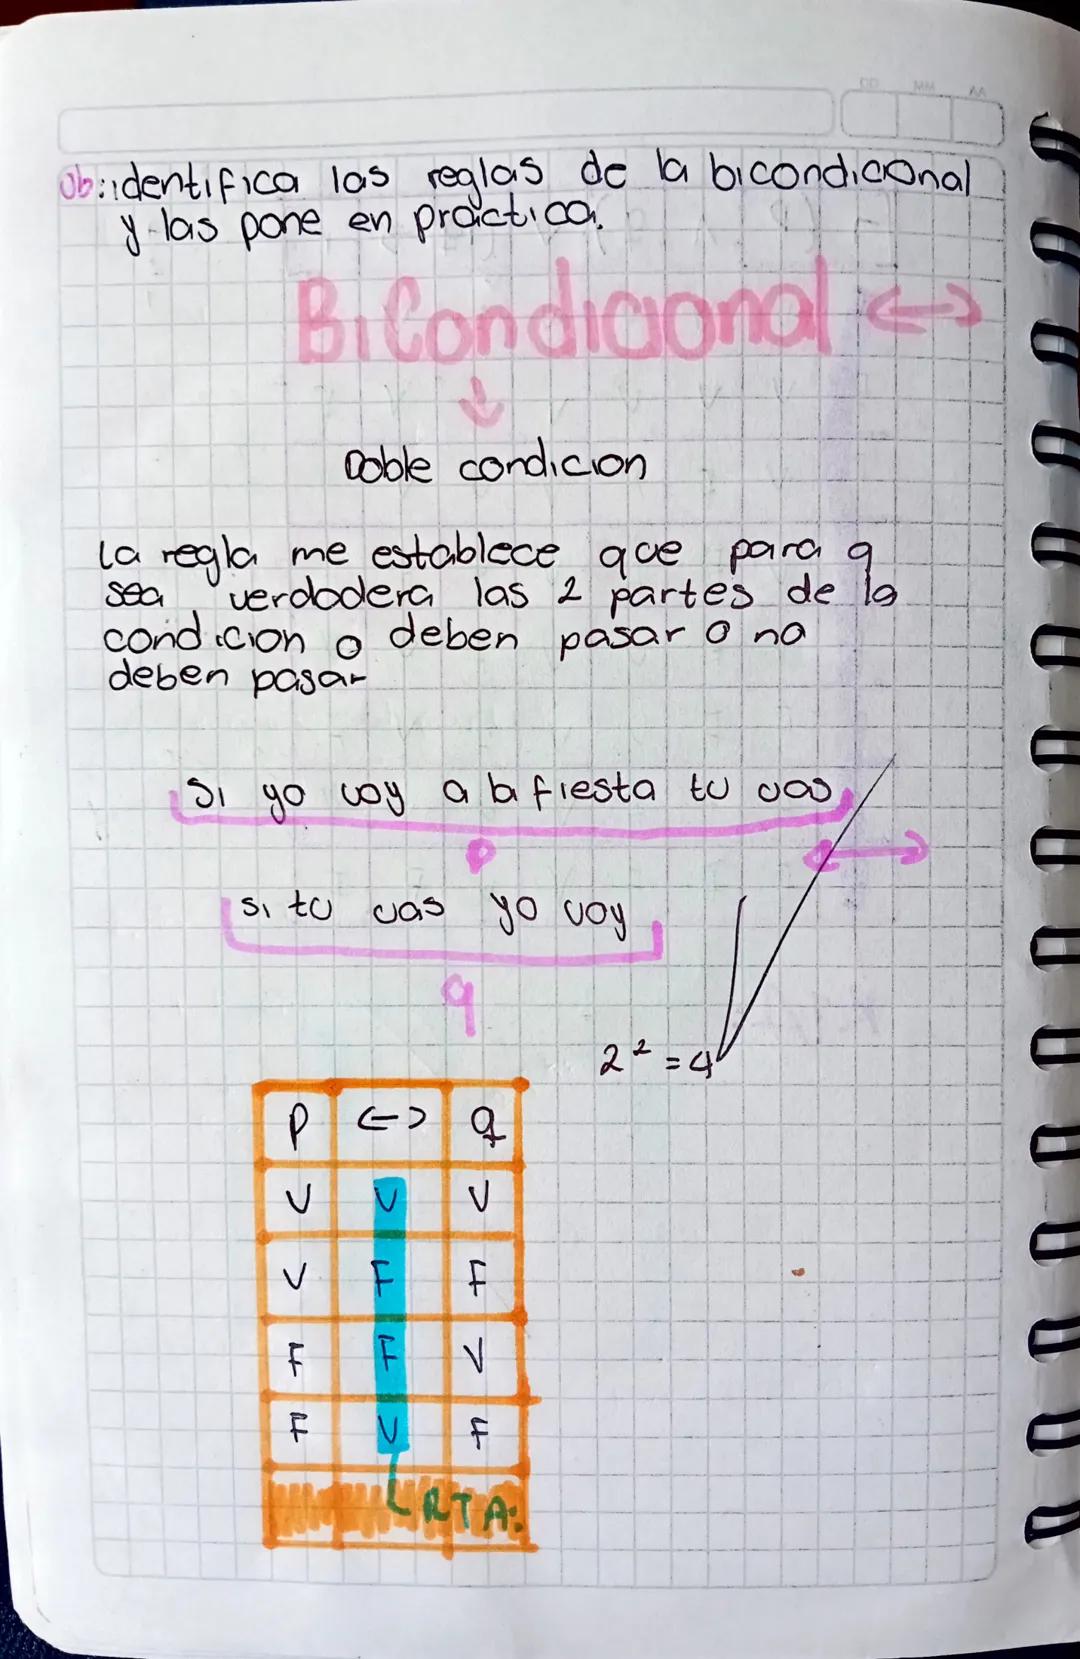 DD MM AA
Ob: identifica las reglas de la bicondicional
y las pone en practica.
BiCondicional <->
↓
Doble condicion
La regla me establece que para q
sea verdadera las 2 partes de la
condicion o deben pasar o no
deben pasar
Si yo voy a la fiesta tu vas
p <->
si tu vas yo voy
q
2² = 4
p <-> q
V V V
V F F
F F V
F V F
RTA: